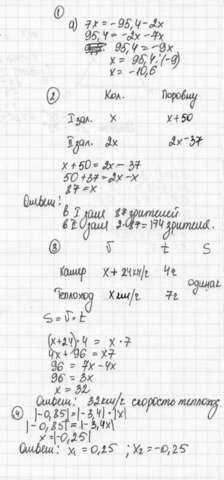 ①
а) 7x = -95,4 - 2x
95,4 = -2x - 7x
95,4 = -9x
x = 95,4 : (-9)
x = -10,6
②
Кол. Поровну
I зал. x x+50
II зал. 2x 2x-37
x + 50 = 2x - 37
50 + 37 = 2x - x
87 = x
Ответ:
в I зале 87 зрителей
в II зале 2·87 = 174 зрителя.
③ v t S
Катер x + 24 км/ч 4ч
одинак.
Теплоход x км/ч 7ч
S = v · t
(x+24)·4 = x · 7
4x + 96 = x7
96 = 7x - 4x
96 = 3x
x = 32
Ответ: 32 км/ч скорость теплоход.
④ |-0,85| = |-3,4| · |x|
|-0,85| = |-3,4x|
x = |-0,25|
Ответ: x₁ = 0,25 ; x₂ = -0,25